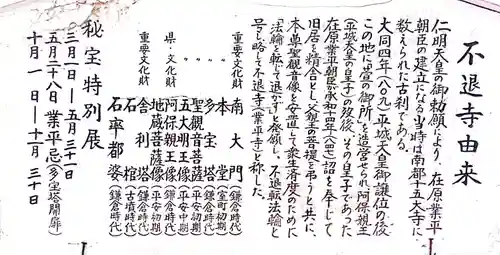 不退寺由来
仁明天皇の御勅願により、在原業平
朝臣の建立になり当時は南都十五大寺に
数えられた古刹である。
大同四年(八〇九)平城天皇御譲位の後
この地に萱の御所を造営せられ阿保親王
(平城天皇の皇子)の歿後、その皇子であった
在原業平朝臣が承和十四年(八四七)詔を奉じて
旧居を精舎とし父親王の菩提を弔うと共に、
本尊聖観音像を安置して衆生済度のために
「法輪を転じて退かず」と発願し、不退転法輪と
号し略して不退寺(業平寺)と称した。
重要文化財 南大門(鎌倉時代)
〃 本堂(室町初期)
〃 多宝塔(鎌倉時代)
〃 聖観音菩薩(平安初期)
〃 五大明王像(平安中期)
県・文化財 阿保親王像(鎌倉時代)
地蔵菩薩像(平安初期)
重要文化財 舎利塔(鎌倉時代)
石棺(古墳時代)
石率都婆(鎌倉時代)
秘宝特別展
三月一日―五月三十一日
五月二十八日業平忌(多宝塔開扉)
十月一日―十一月三十日